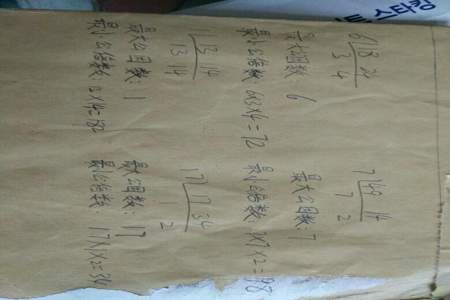 6 18 24
3 4
最大公因数 6
最小公倍数 6×3×4=72
1 13 14
13 14
最大公因数: 1
最小公倍数: 13×14=182
7 49 14
7 2
最大公因数: 7
最小公倍数 7×7×2=98
17 17 34
1 2
最大公因数: 17
最小公倍数: 17×1×2=34